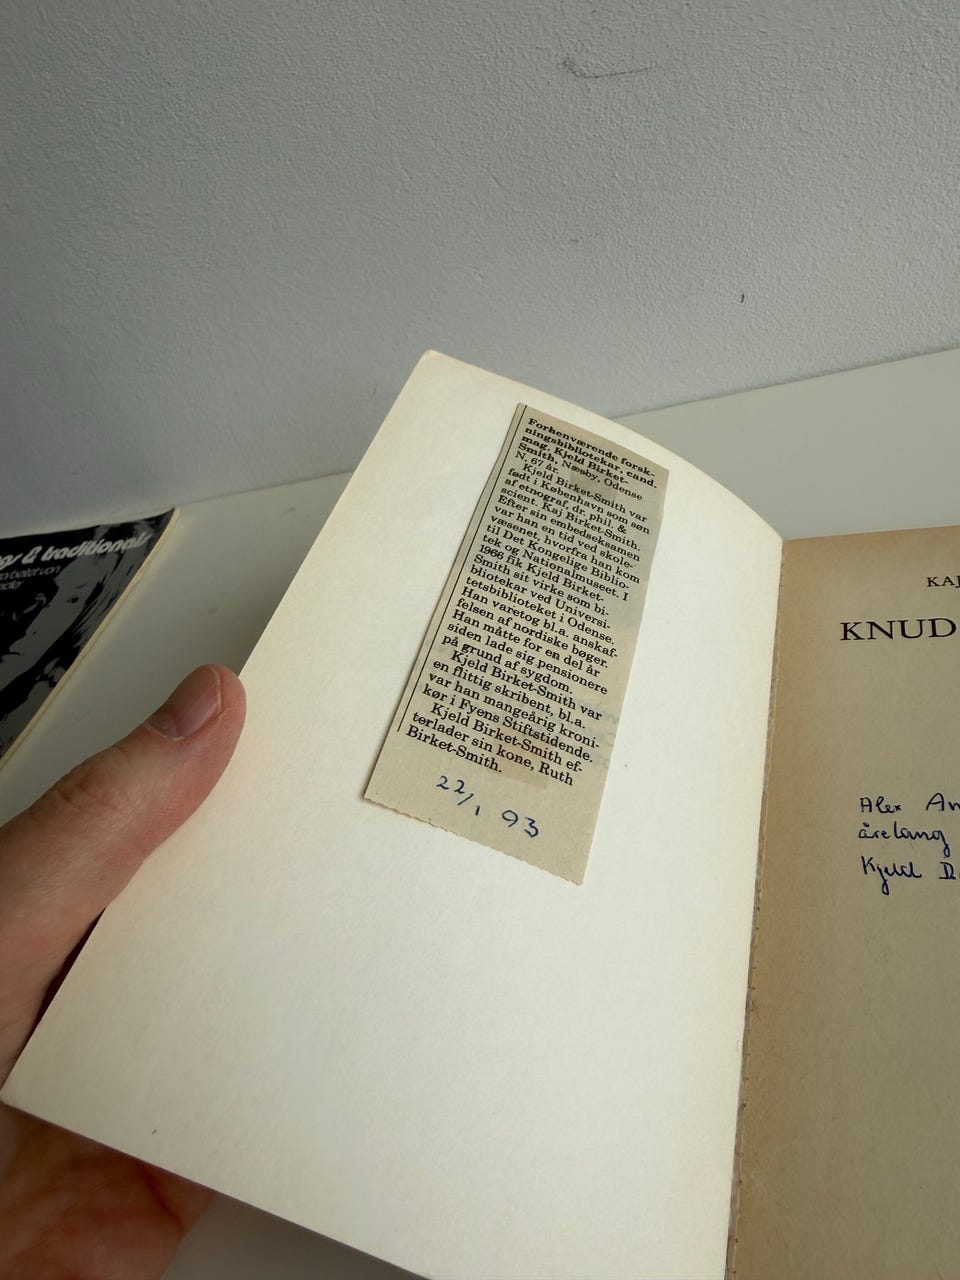 & traditionals
arbeitet von
Forhenværende forsk-
ningsbibliotekar, cand.
mag. Kjeld Birket-
Smith, Næsby, Odense
N, 67 år.
Kjeld Birket-Smith var
født i København som søn
af etnograf, dr. phil. &
scient. Kaj Birket-Smith.
Efter sin embedseksamen
var han en tid ved skole-
væsenet, hvorfra han kom
til Det Kongelige Biblio-
tek og Nationalmuseet. I
1966 fik Kjeld Birket-
Smith sit virke som bi-
bliotekar ved Universi-
tetsbiblioteket i Odense.
Han varetog bl.a. anskaf-
felsen af nordiske bøger.
Han måtte for en del år
siden lade sig pensionere
på grund af sygdom.
Kjeld Birket-Smith var
en flittig skribent, bl.a.
var han mangeårig kroni-
kør i Fyens Stiftstidende.
Kjeld Birket-Smith ef-
terlader sin kone, Ruth
Birket-Smith.
22/1 93
KAJ
KNUD
Alex An
årelang
Kjeld